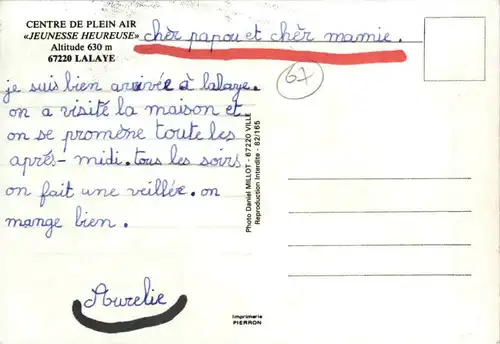 CENTRE DE PLEIN AIR
«JEUNESSE HEUREUSE»
Altitude 630 m
67220 LALAYE
chèr papou et chèr mamie.
67
je suis bien arrivée à lalaye.
on a visité la maison et
on se promène toute les
après-midi. tous les soirs
on fait une veillée. on
mange bien.
Aurelie
Photo Daniel MILLOT - 67220 VILLE
Reproduction Interdite - 82/165
Imprimerie
PIERRON